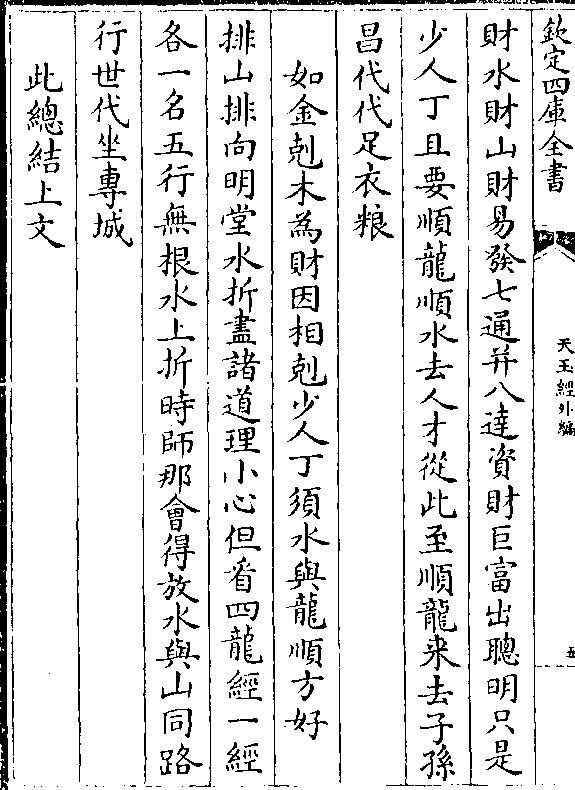 欽定四庫全書
天玉經外編
五
財水財山財易發七通并八達資財巨富出聰明只是
少人丁且要順龍順水去人才從此至順龍来去子孫
昌代代足衣粮
如金剋木為財因相剋少人丁須水與龍順方好
排山排向明堂水折盡諸道理小心但看四龍經一經
各一名五行無根水上折時師那會得放水與山同路
行世代坐專城
此總結上文